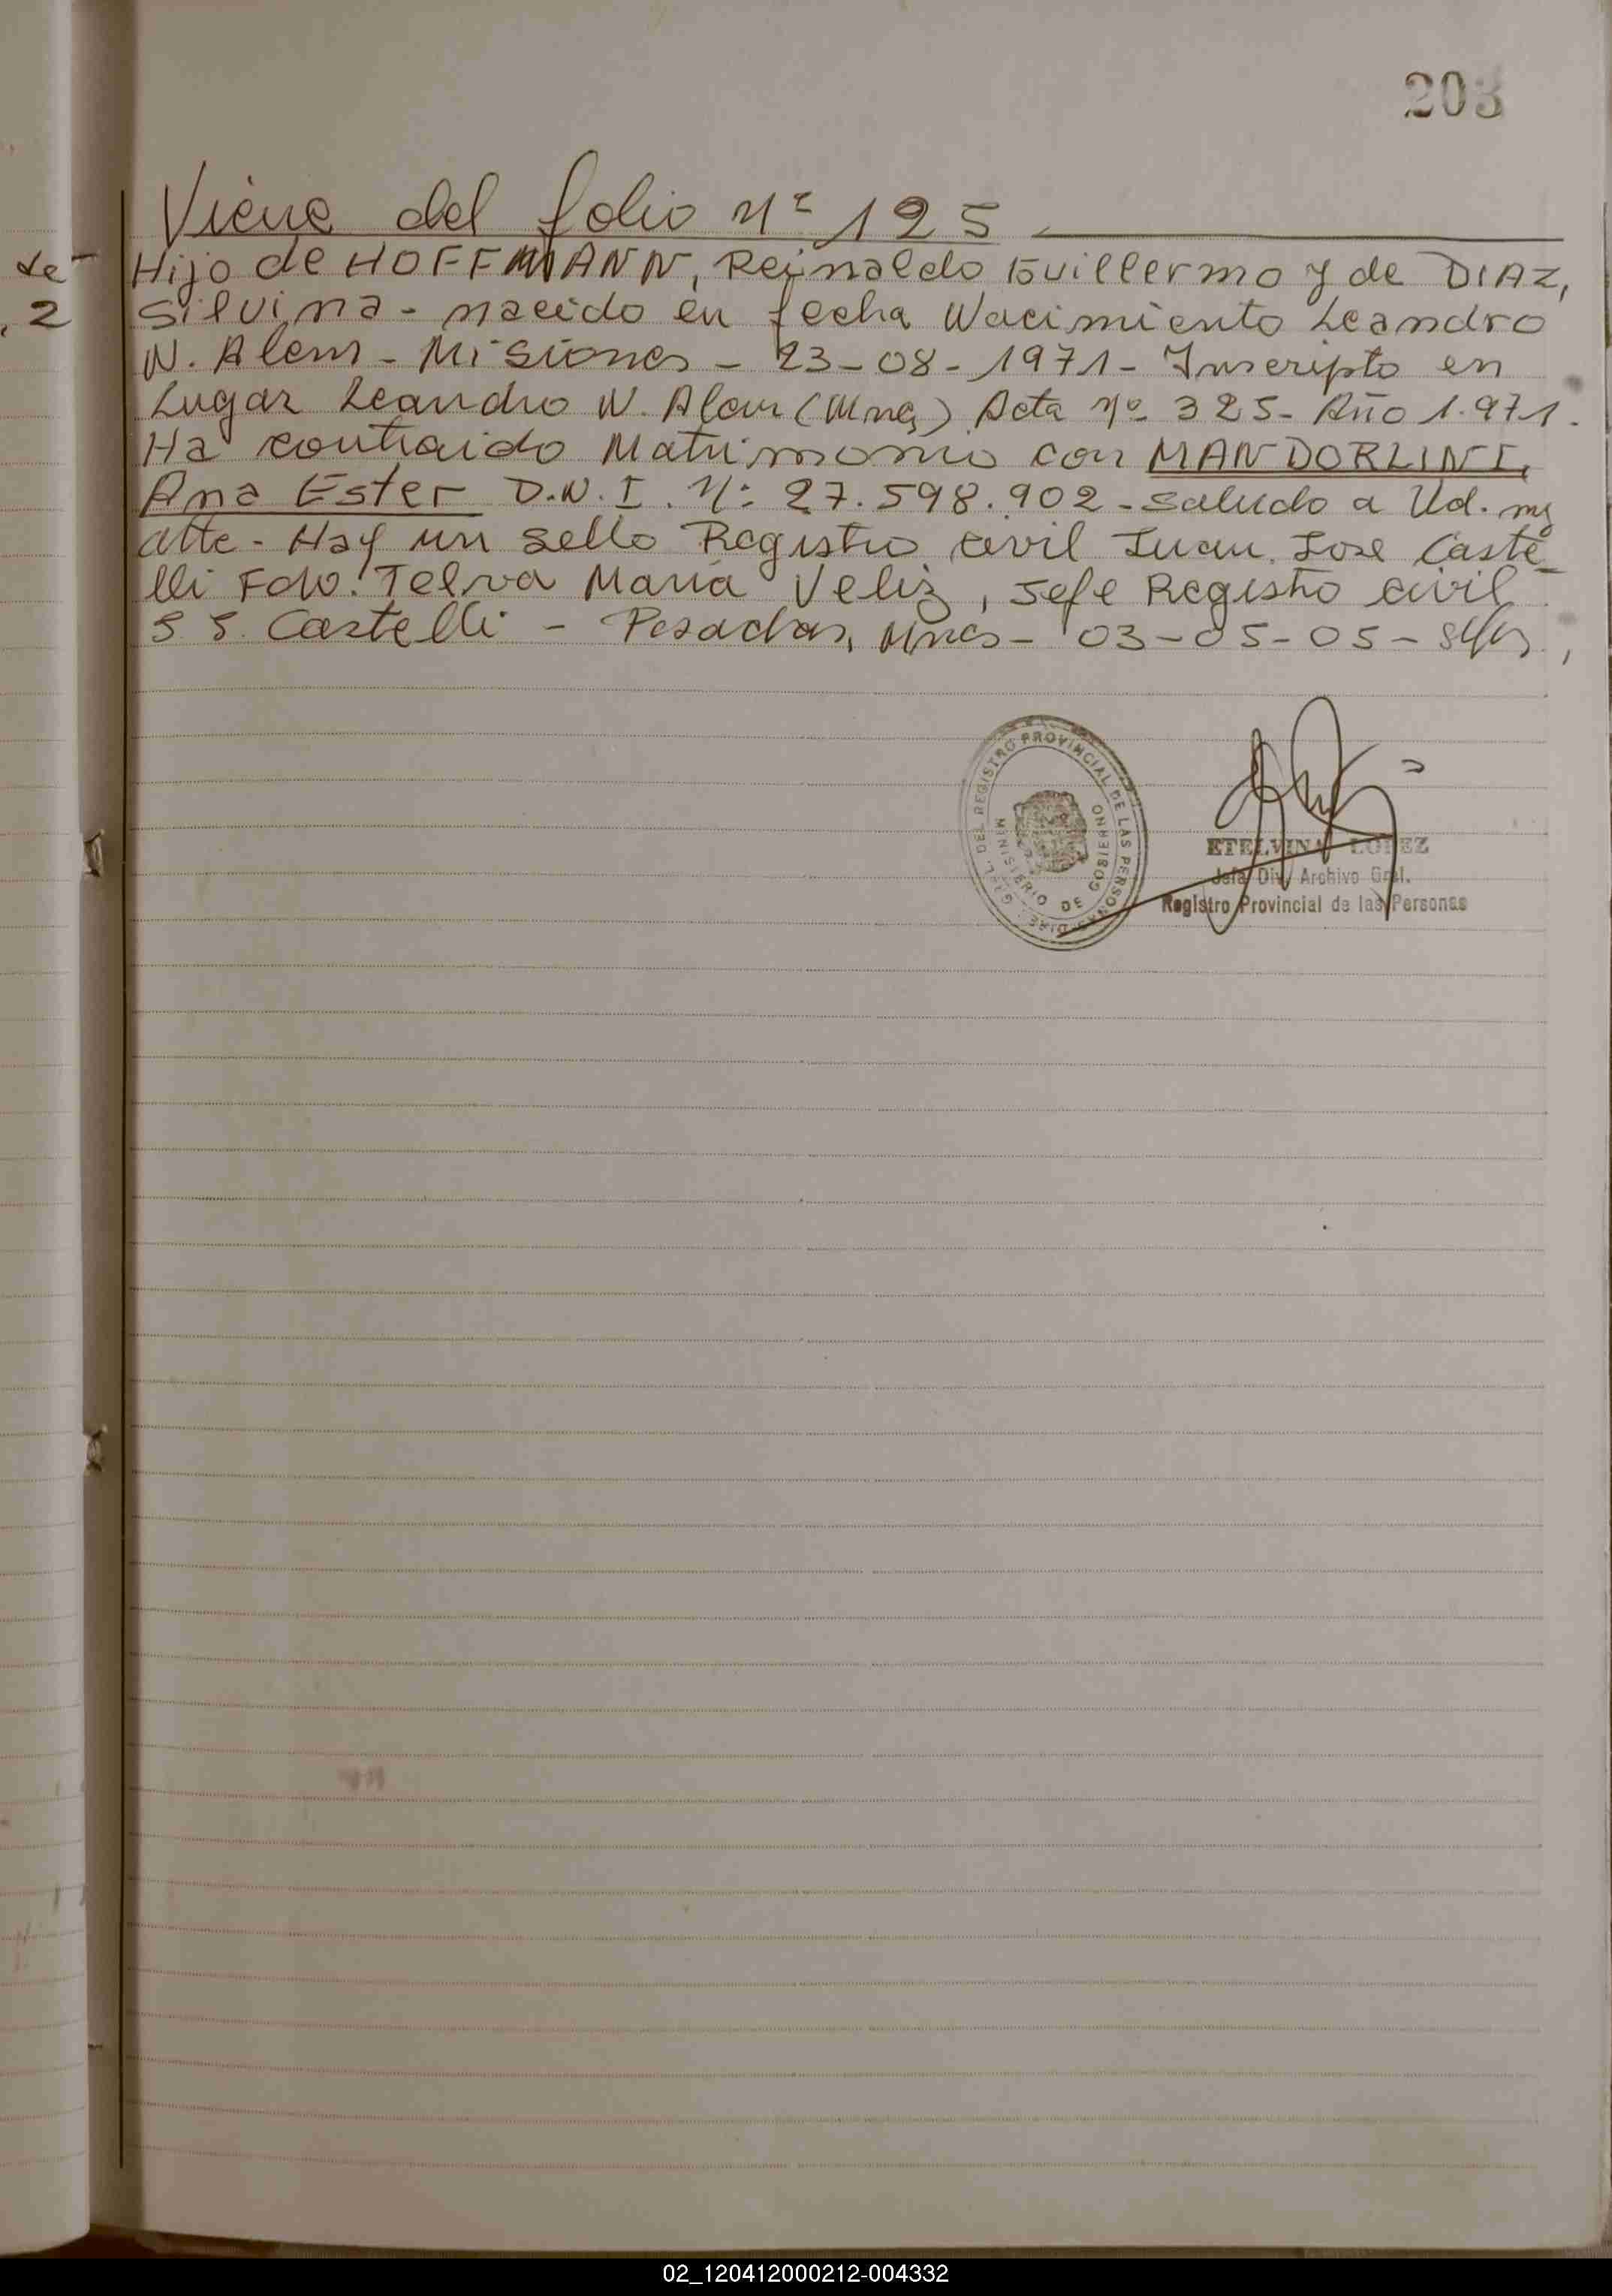 203
Viene del folio Nº 125
Hijo de HOFFMANN, Reinaldo Guillermo y de DIAZ,
Silvina - nacido en fecha Nacimiento Leandro
N. Alem - Misiones - 23-08-1971 - Inscripto en
Lugar Leandro N. Alem (Mnes) Acta Nº 325 - Año 1.971.
Ha contraido Matrimonio con MANDORLINI,
Ana Ester D.N.I. Nº 27.598.902 - Saludo a Ud. my
atte - Hay un sello Registro civil Juan Jose Caste-
lli Fdo. Telva María Veliz, Jefe Registro civil
J J. Castelli - Posadas, Mnes - 03-05-05 -
de-
2
REGISTRO PROVINCIAL DE LAS PERSONAS
MINISTERIO DE GOBIERNO
ETELVINA LOPEZ
Jefa Div. Archivo Gral.
Registro Provincial de las Personas
02_120412000212-004332